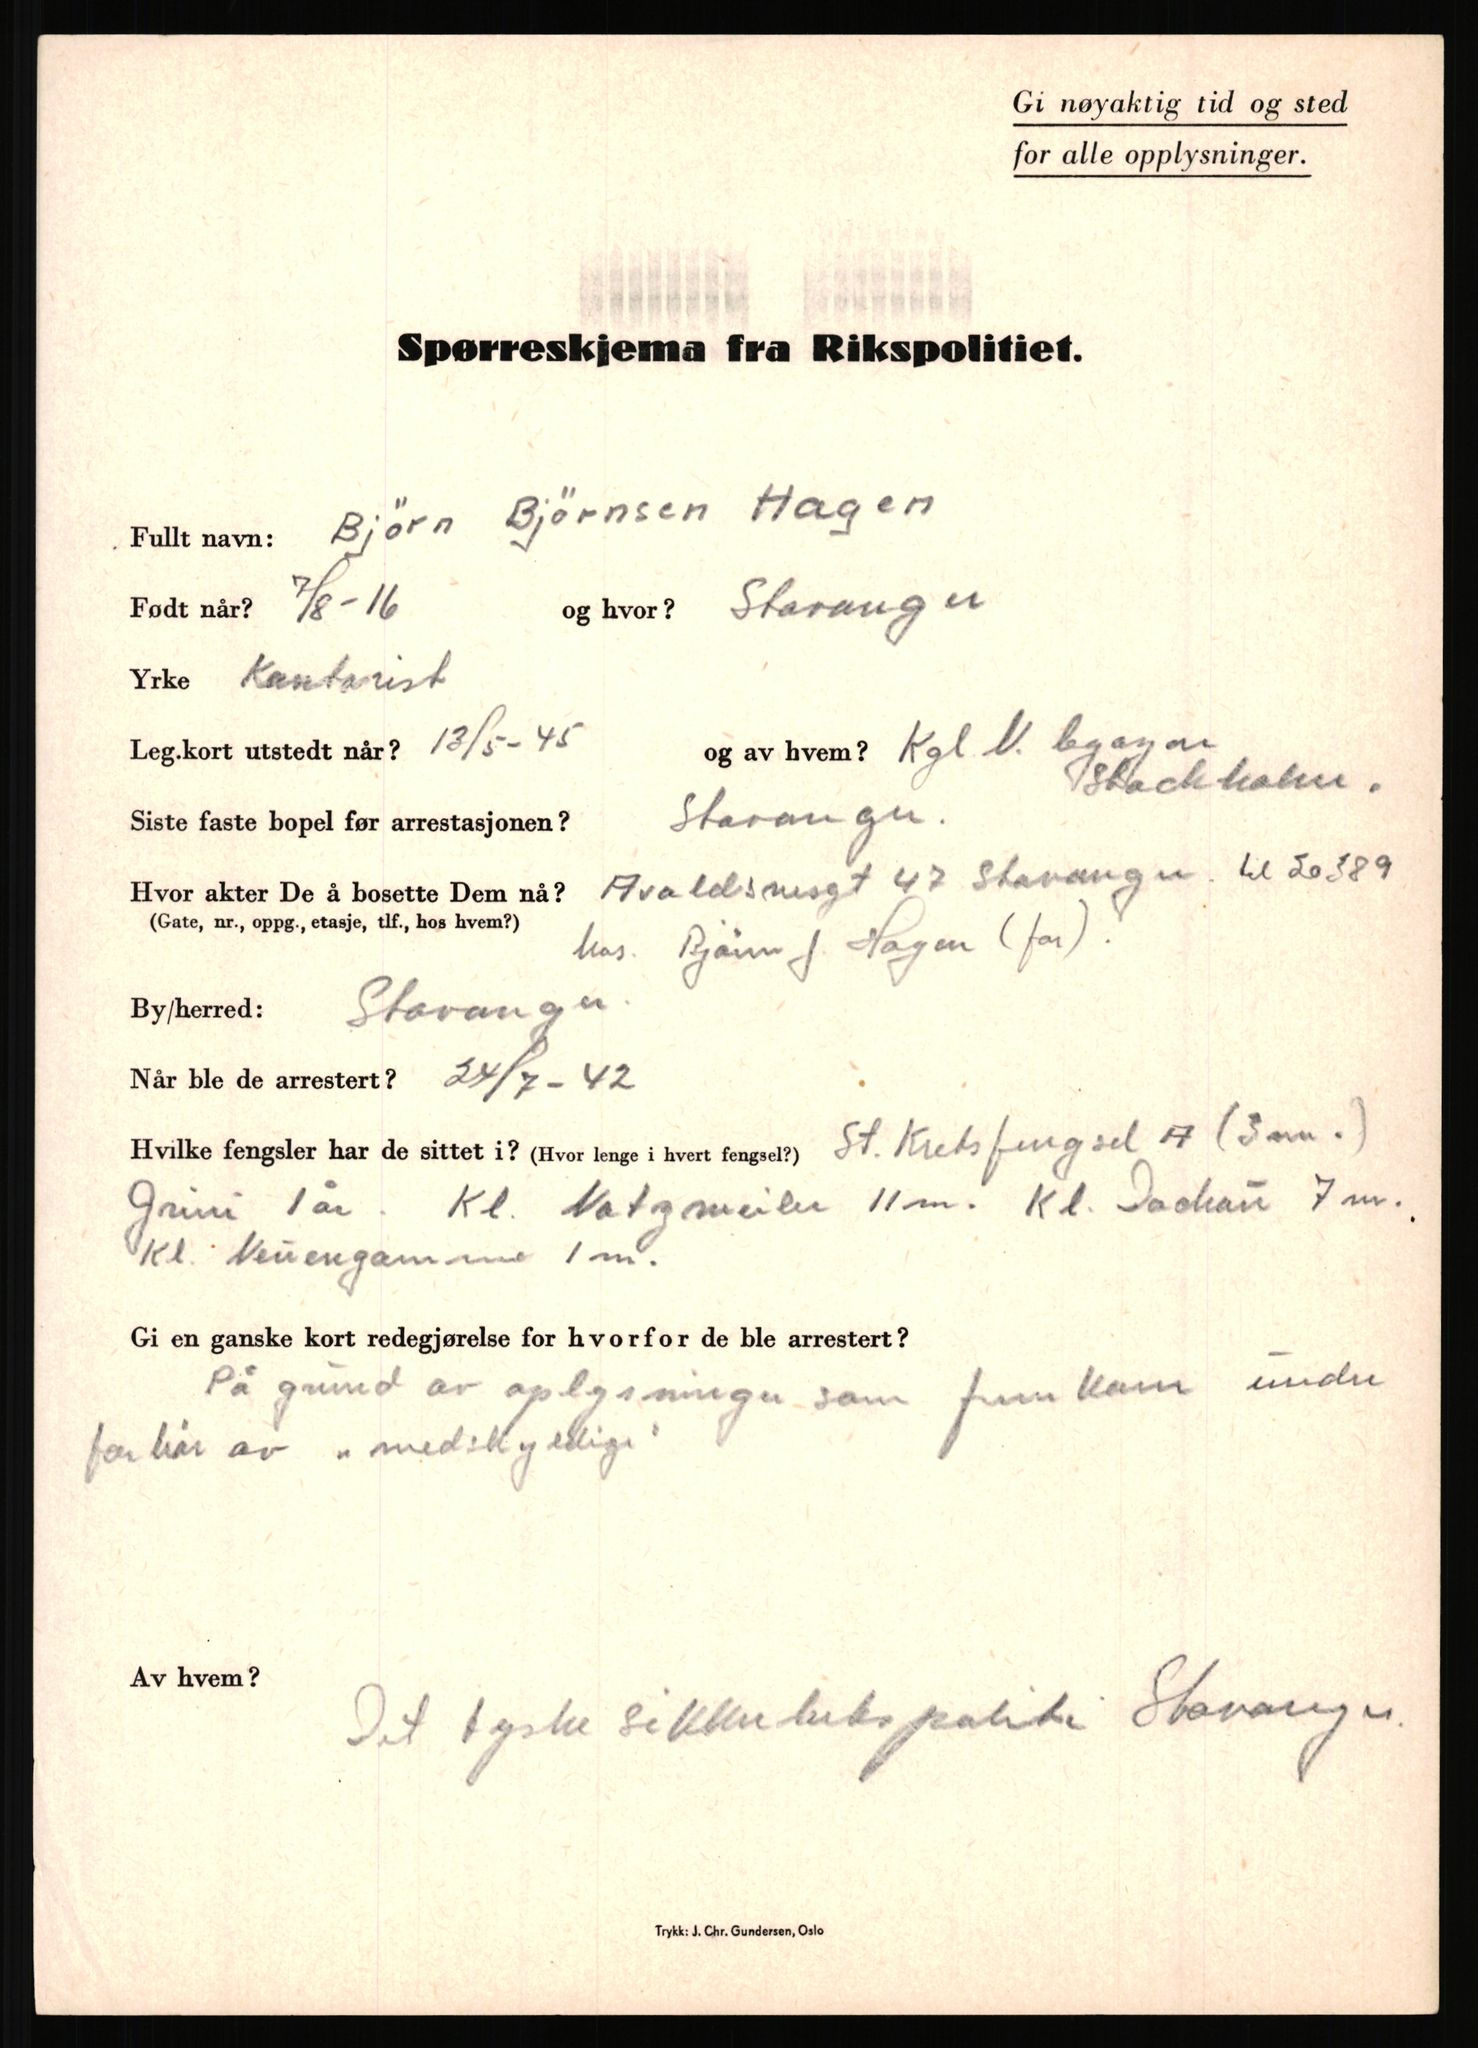 Gi nøyaktig tid og sted
for alle opplysninger.
Spørreskjema fra Rikspolitiet.
Fullt navn: Björn Björnsen Hagen
Født når? 7/8-16 og hvor? Stavanger
Yrke Kontorist
Leg.kort utstedt når? 13/5-45 og av hvem? Kgl N. legasjon
Stockholm.
Siste faste bopel før arrestasjonen? Stavanger.
Hvor akter De å bosette Dem nå? Avaldsnesgt 47 Stavanger. tel 20389
(Gate, nr., oppg., etasje, tlf., hos hvem?)
hos. Björn J. Hagen (far).
By/herred: Stavanger.
Når ble de arrestert? 24/7-42
Hvilke fengsler har de sittet i? (Hvor lenge i hvert fengsel?) St. Kretsfengsel A (3 mn.)
Grini 1 år. Kl. Natzweiler 11 m. Kl. Dachau 7 m.
Kl. Neuengamme 1 m.
Gi en ganske kort redegjørelse for hvorfor de ble arrestert?
På grund av oplysninger som fremkom under
forhör av „medskyldige"
Av hvem?
Det tyske sikkerhetspoliti Stavanger.
Trykk: J. Chr. Gundersen, Oslo